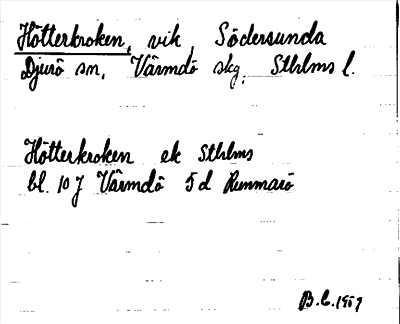 Hötterkroken, vik, Södersunda
Djurö sn, Värmdö skg, Sthlms l.
Hötterkroken ek Sthlms
bl. 10 J Värmdö 5 d Runmarö
B.C. 1957